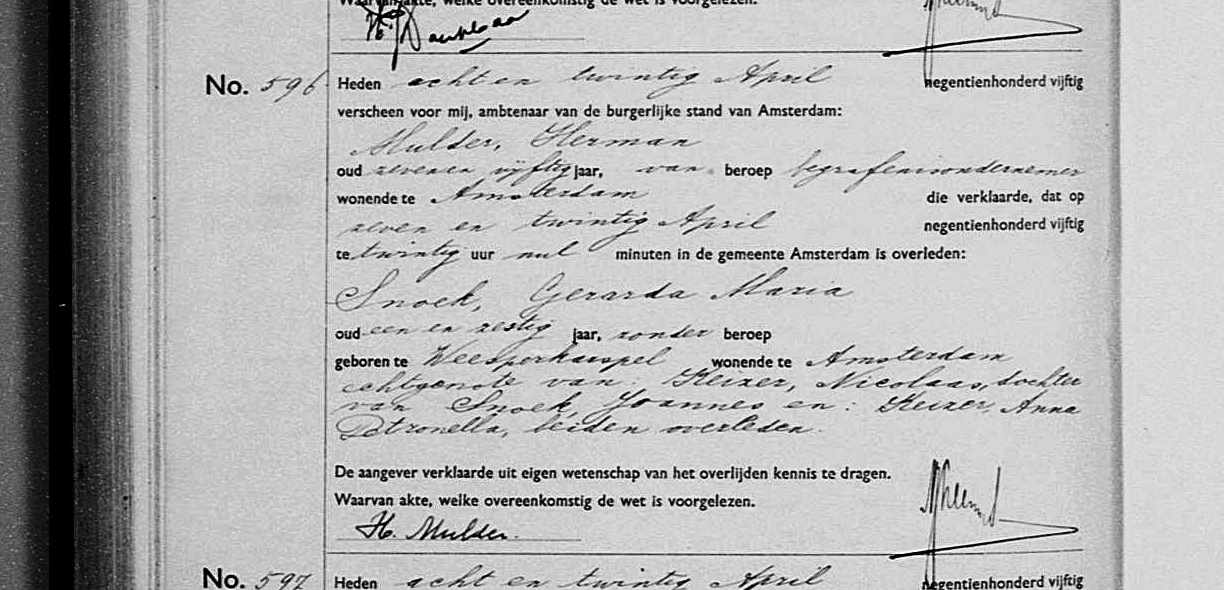 Waarvan akte, welke overeenkomstig de wet is voorgelezen.
No. 596 Heden acht en twintig April negentienhonderd vijftig
verscheen voor mij, ambtenaar van de burgerlijke stand van Amsterdam:
Mulder, Herman
oud zevenen vijftig jaar, van beroep begrafenisondernemer
wonende te Amsterdam die verklaarde, dat op
zeven en twintig April negentienhonderd vijftig
te twintig uur nul minuten in de gemeente Amsterdam is overleden:
Snoek, Gerarda Maria
oud een en zestig jaar, zonder beroep
geboren te Weesperkarspel wonende te Amsterdam
echtgenote van: Keizer, Nicolaas, dochter
van Snoek, Joannes en: Keizer, Anna
Petronella, beiden overleden.
De aangever verklaarde uit eigen wetenschap van het overlijden kennis te dragen.
Waarvan akte, welke overeenkomstig de wet is voorgelezen.
H. Mulder.
No. 597 Heden acht en twintig April negentienhonderd vijftig